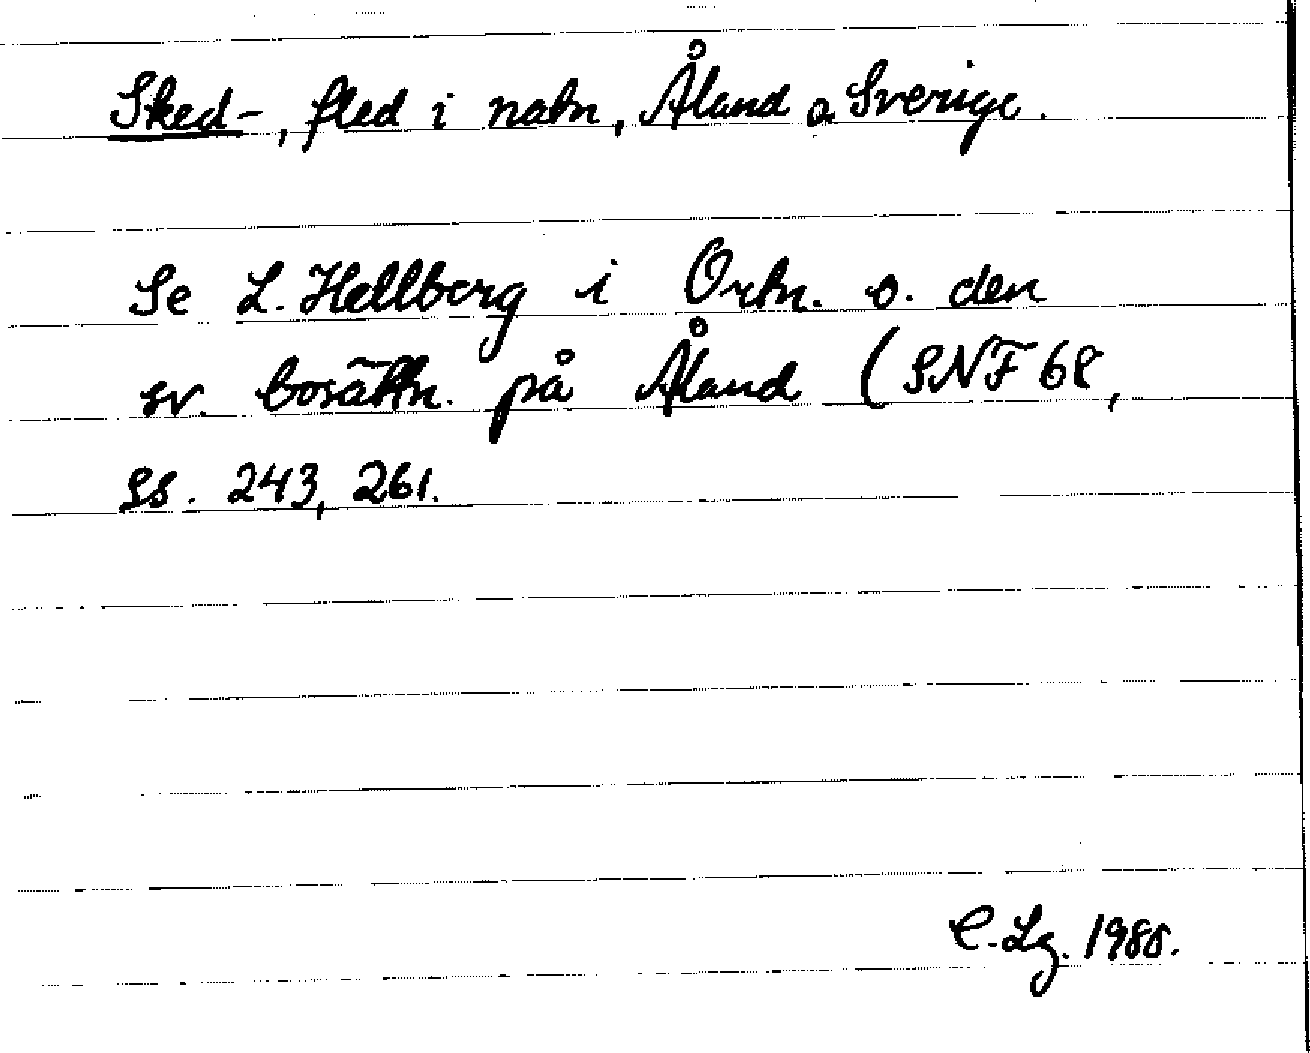 Sked-, fled i nabn, Åland o. Sverige.
Se L. Hellberg i Ortn. o. den
sv. bosättn. på Åland (SNF 68,
ss. 243, 261.
C. Lg. 1988.